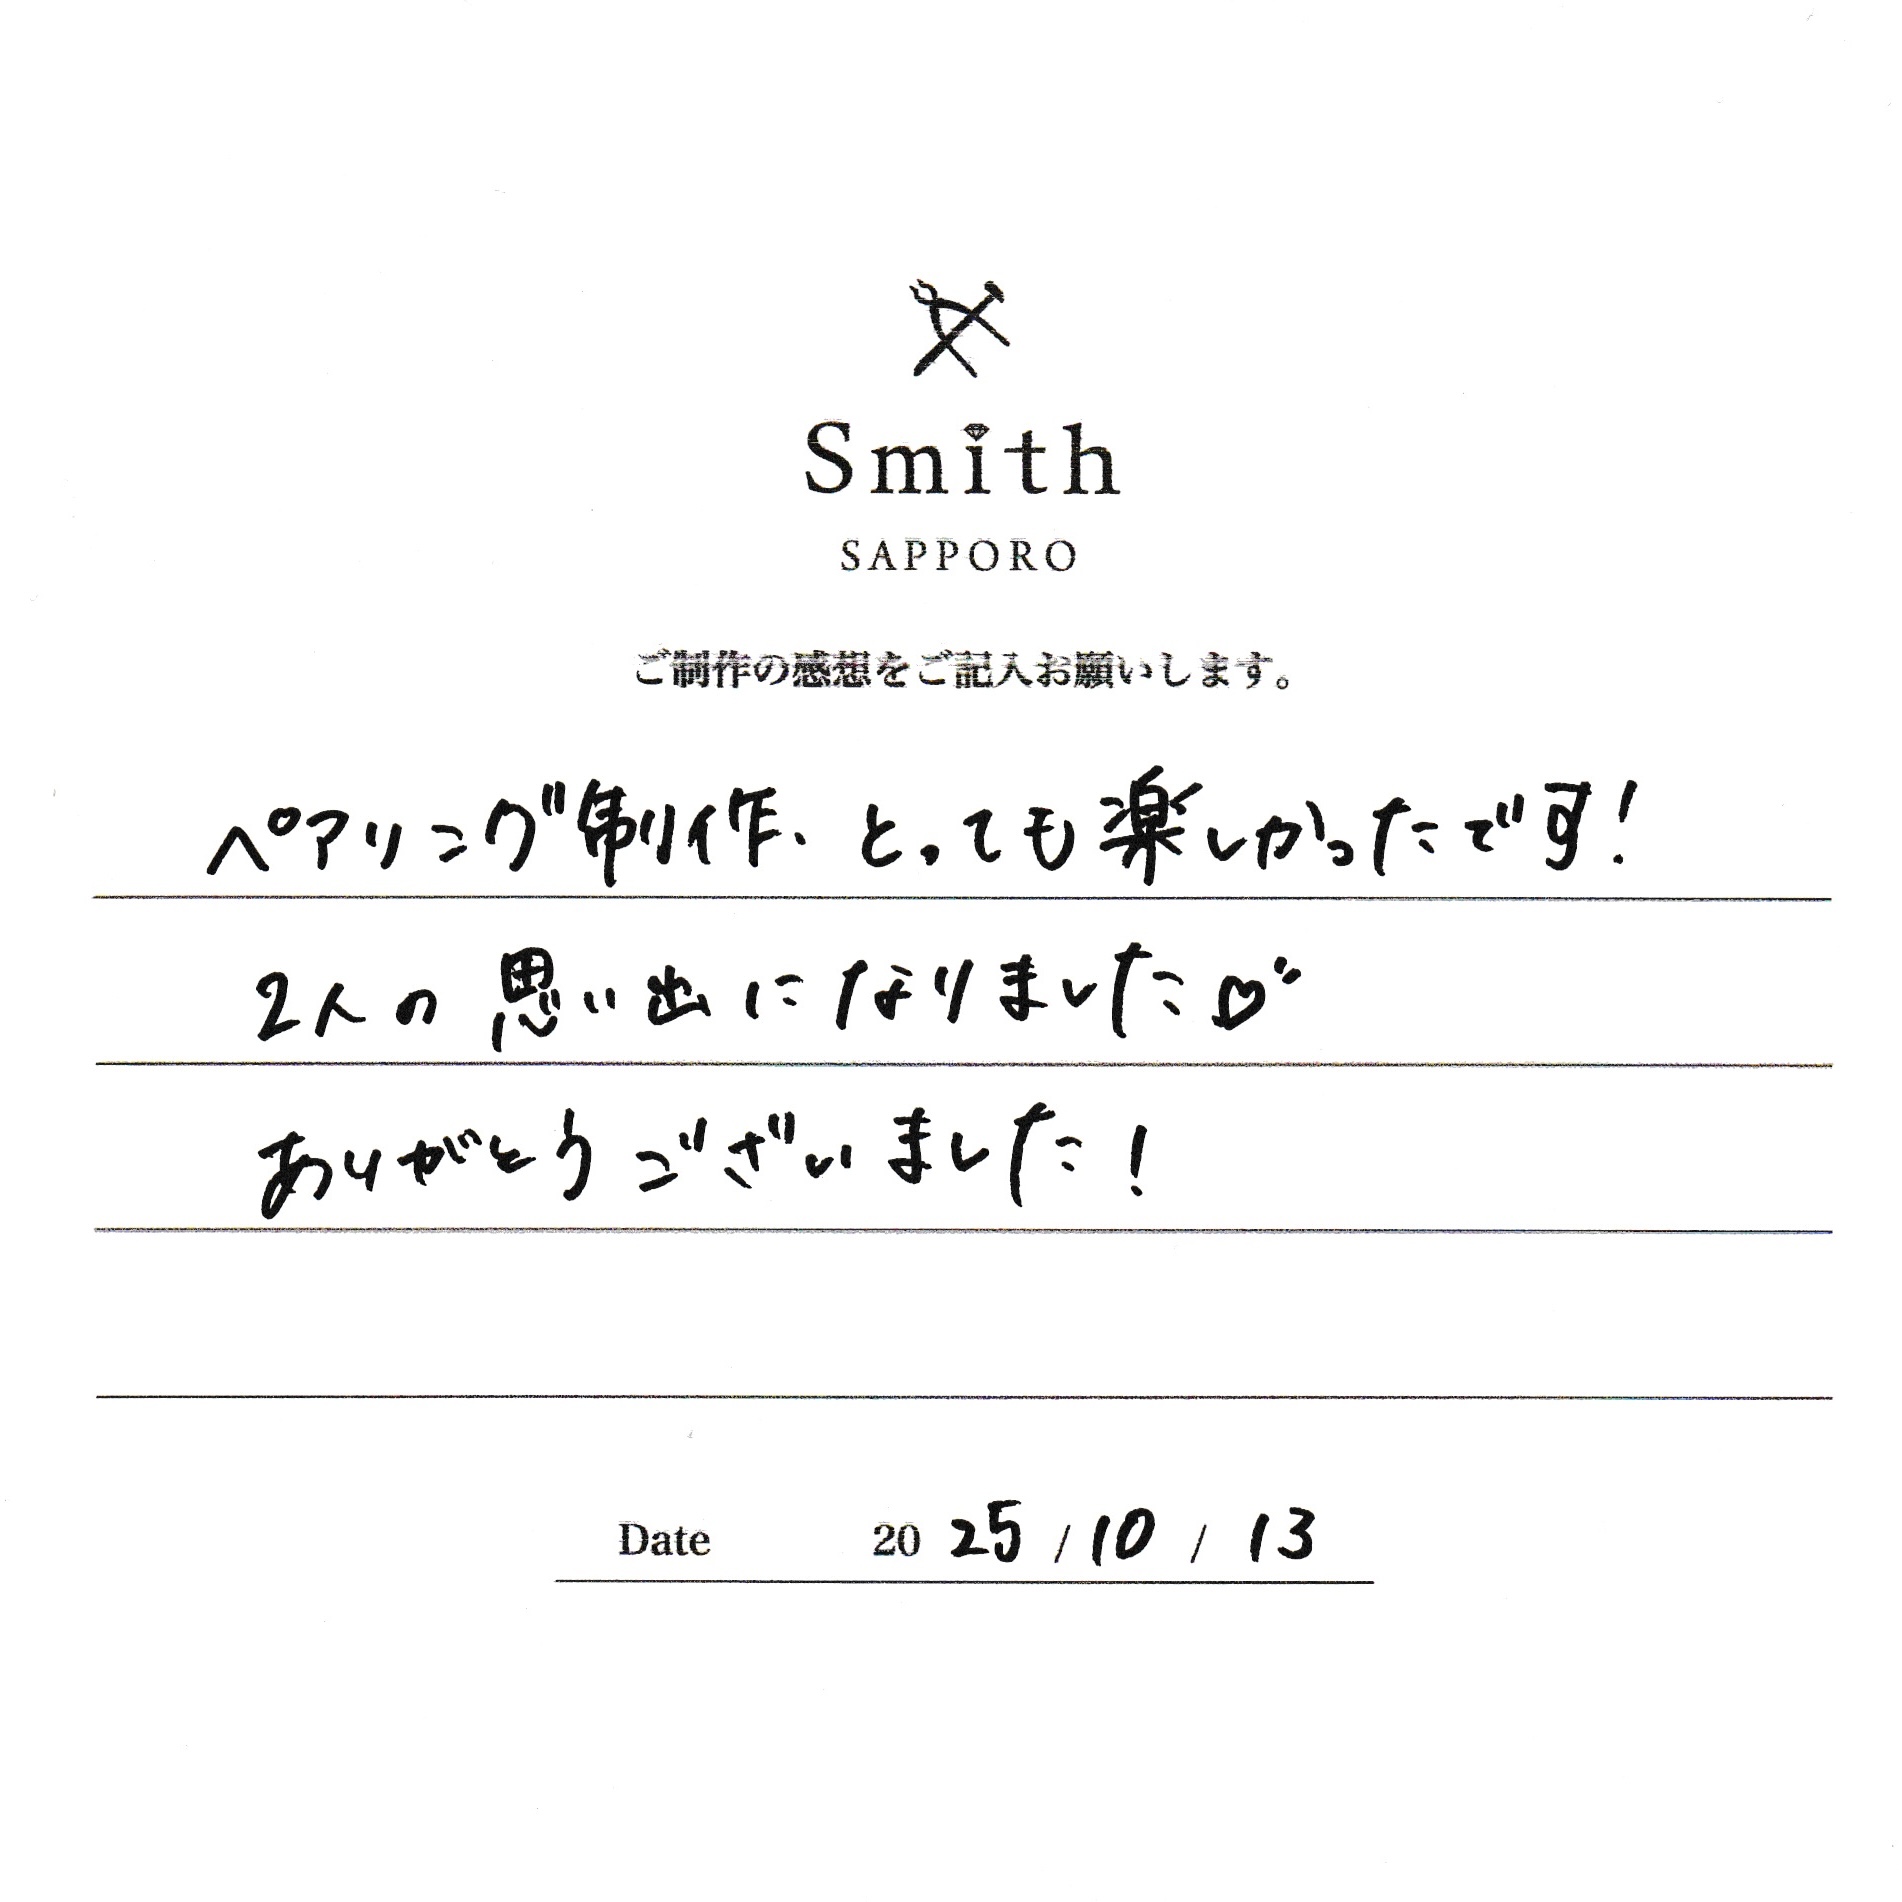 Smith
SAPPORO
ご制作の感想をご記入お願いします。
ペアリング制作、とっても楽しかったです!
2人の思い出になりました♡
ありがとうございました!
Date 2025/10/13